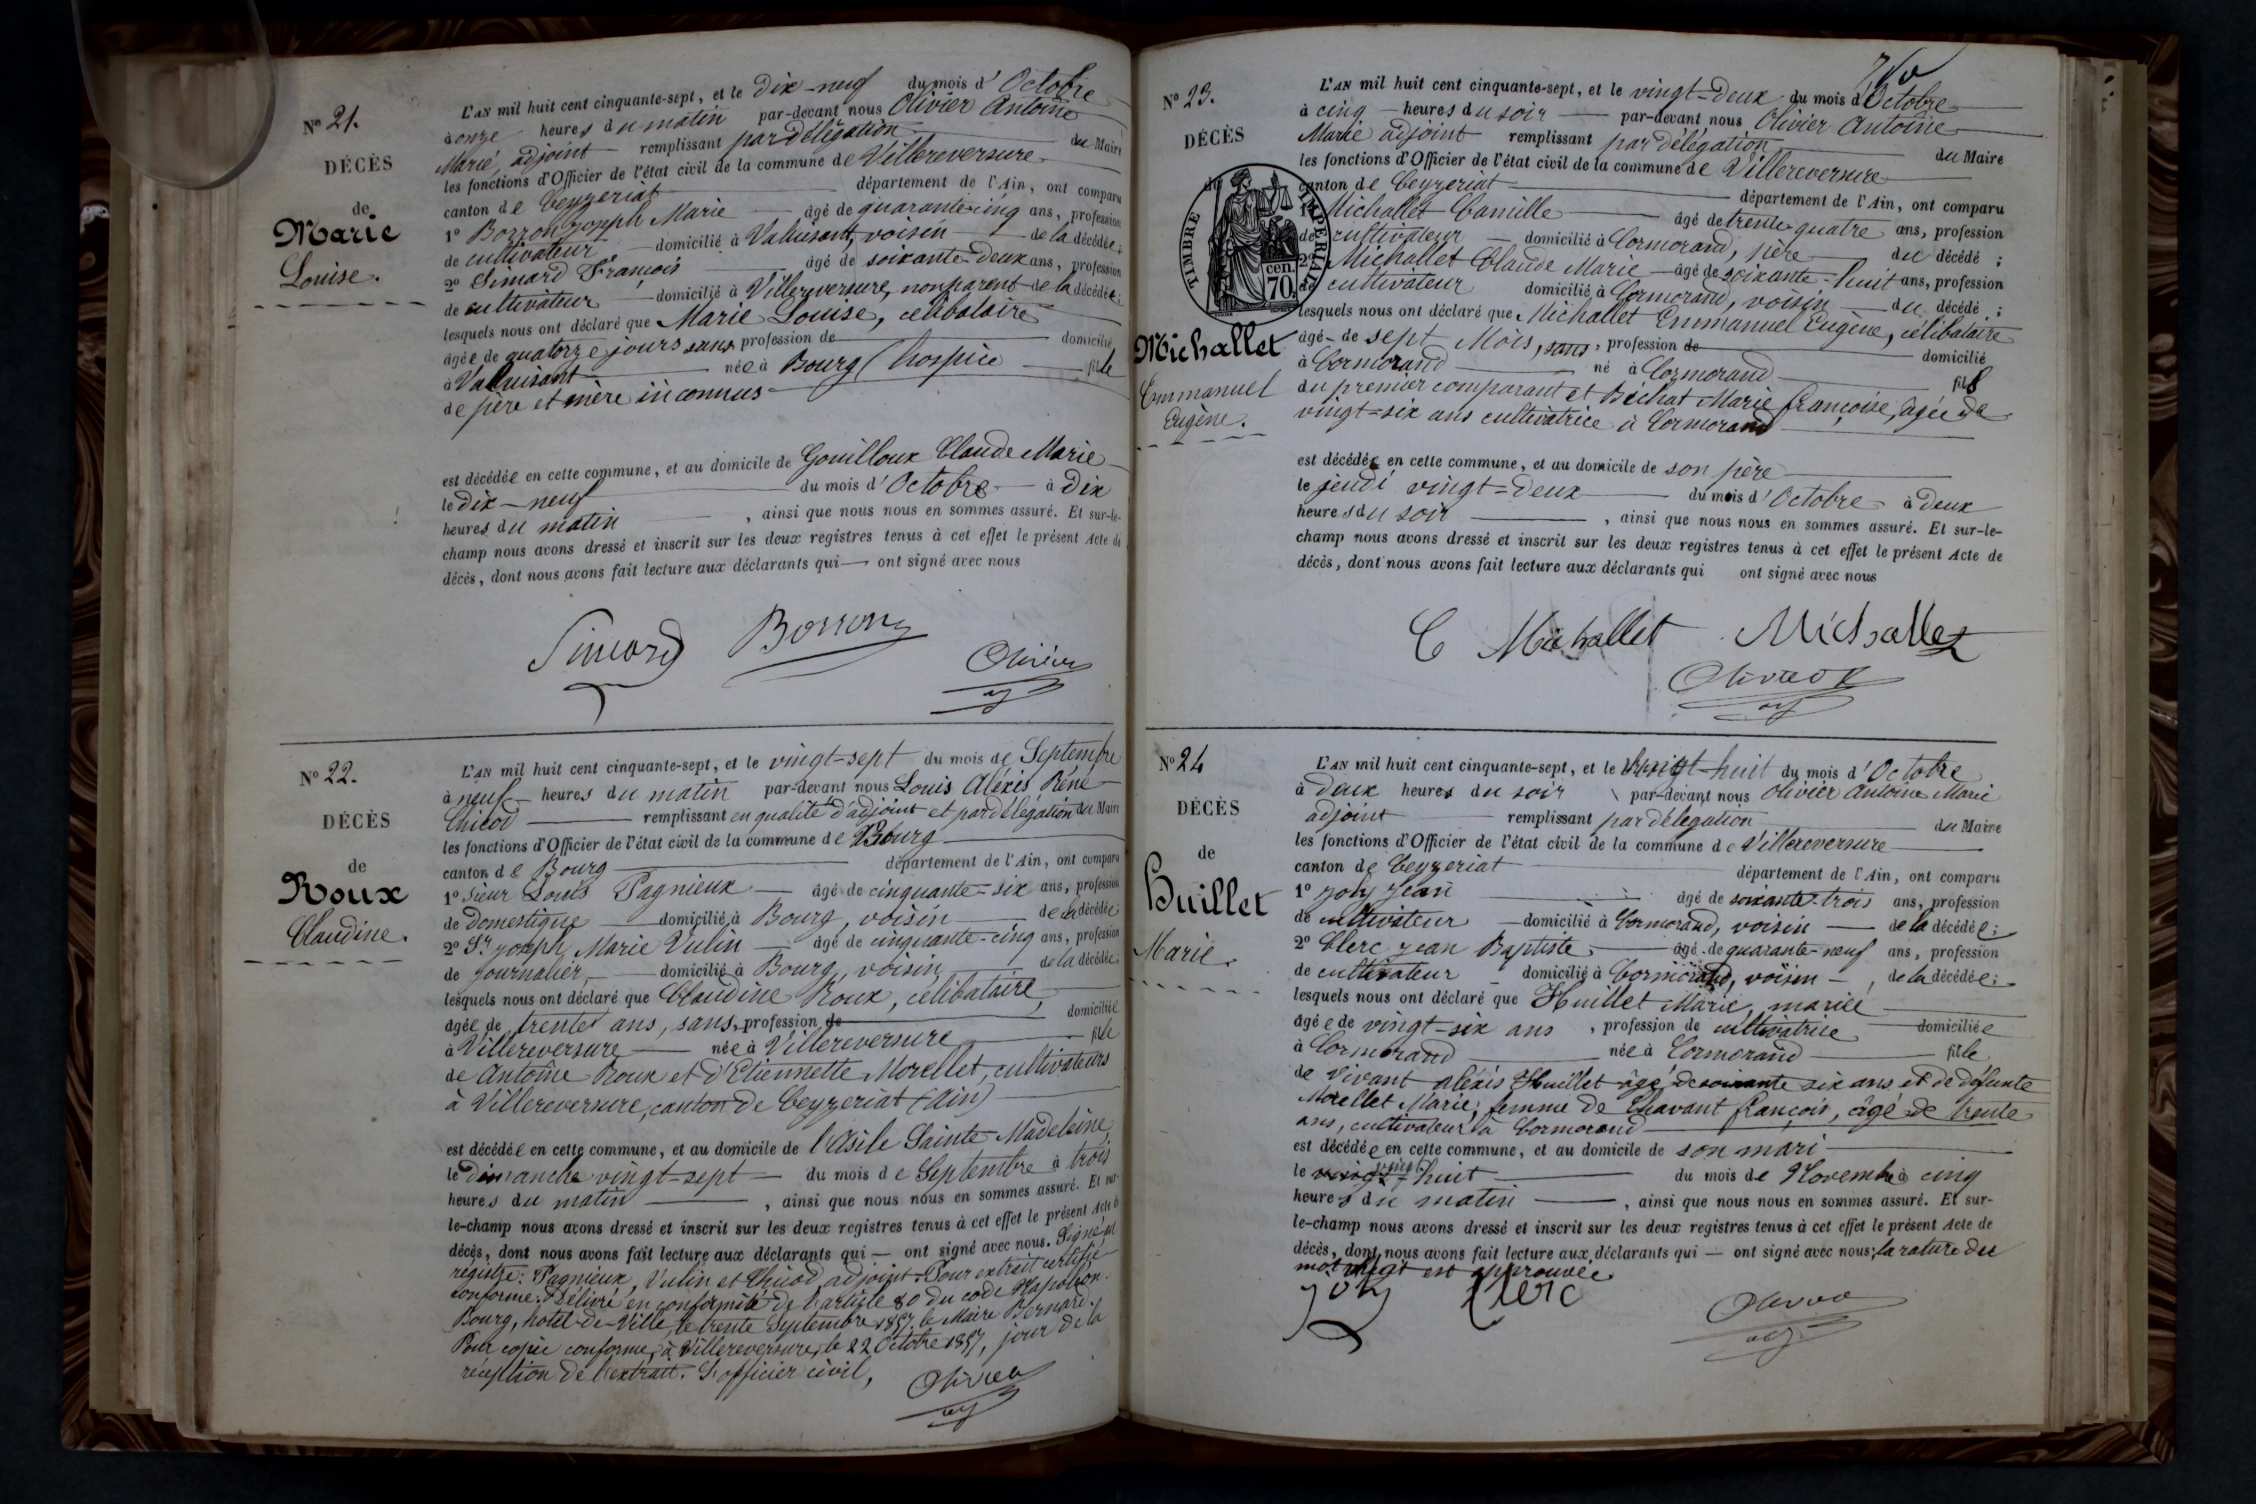 Nº 21.
DÉCÈS
de
Marie
Louise.
L'AN mil huit cent cinquante-sept, et le dix-neuf du mois d'Octobre
à onze heures du matin par-devant nous Olivier Antoine
Marie, adjoint remplissant par délégation du Maire
les fonctions d'Officier de l'état civil de la commune de Villereversure
canton de Ceyzeriat département de l'Ain, ont comparu
1º Borron Joseph Marie âgé de quarante-cinq ans, profession
de cultivateur domicilié à Valuisant, voisin de la décédée;
2º Simard François âgé de soixante-deux ans, profession
de cultivateur domicilié à Villereversure, non parent de la décédée;
lesquels nous ont déclaré que Marie Louise, célibataire
âgée de quatorze jours sans profession de domicilié
à Valuisant née à Bourg (hospice fille
de père et mère inconnus
est décédée en cette commune, et au domicile de Gouilloux Claude Marie
le dix-neuf du mois d'Octobre à dix
heures du matin , ainsi que nous nous en sommes assuré. Et sur-le-
champ nous avons dressé et inscrit sur les deux registres tenus à cet effet le présent Acte de
décès, dont nous avons fait lecture aux déclarants qui ont signé avec nous
Simard Borron
Olivier
adj
Nº 22.
DÉCÈS
de
Roux
Claudine.
L'AN mil huit cent cinquante-sept, et le vingt-sept du mois de Septembre
à neuf heures du matin par-devant nous Louis Alexis Réné
Chicod remplissant en qualité d'adjoint et par délégation du Maire
les fonctions d'Officier de l'état civil de la commune de Bourg
canton de Bourg département de l'Ain, ont comparu
1º Sieur Louis Pagnieux âgé de cinquante-six ans, profession
de domestique domicilié à Bourg, voisin de la décédée;
2º Sr. Joseph Marie Vulin âgé de cinquante-cinq ans, profession
de journalier, domicilié à Bourg, voisin de la décédée;
lesquels nous ont déclaré que Claudine Roux, célibataire,
âgée de trente ans, sans, profession de domiciliée
à Villereversure née à Villereversure fille
de Antoine Roux et d'Etiennette Morellet, cultivateurs
à Villereversure, canton de Ceyzeriat (Ain)
est décédée en cette commune, et au domicile de l'Asile Sainte-Madeleine,
le dimanche vingt-sept du mois de Septembre à trois
heures du matin , ainsi que nous nous en sommes assuré. Et sur-
le-champ nous avons dressé et inscrit sur les deux registres tenus à cet effet le présent Acte de
décès, dont nous avons fait lecture aux déclarants qui ont signé avec nous. Signé au
régistre: Pagnieux, Vulin et Chicod adjoint. Pour extrait certifié
conforme. Délivré en conformité de l'article 80 du code Napoléon.
Bourg, hotel-de-Ville, le trente Septembre 1857. le Maire Bernard.
Pour copie conforme, à Villereversure, le 22 Octobre 1857, jour de la
réception de l'extrait. L'officier civil,
Olivier
adj
Nº 23.
DÉCÈS
du
TIMBRE IMPERIAL
cen.
70.
Michallet
Emmanuel
Eugène.
L'AN mil huit cent cinquante-sept, et le vingt-deux du mois d'Octobre
à cinq heures du soir par-devant nous Olivier Antoine
Marie adjoint remplissant par délégation du Maire
les fonctions d'Officier de l'état civil de la commune de Villereversure
canton de Ceyzeriat département de l'Ain, ont comparu
1º Michallet Camille âgé de trente-quatre ans, profession
de cultivateur domicilié à Cormorand, père du décédé ;
2º Michallet Claude Marie âgé de soixante-huit ans, profession
cultivateur domicilié à Cormorand, voisin du décédé ;
lesquels nous ont déclaré que Michallet Emmanuel Eugène, célibataire
âgé de sept Mois, sans, profession de domicilié
à Cormorand né à Cormorand fils
du premier comparant et Béchat Marie françoise, âgée de
vingt-six ans cultivatrice à Cormorand
est décédé en cette commune, et au domicile de son père
le jeudi vingt-deux du mois d'Octobre à deux
heures du soir , ainsi que nous nous en sommes assuré. Et sur-le-
champ nous avons dressé et inscrit sur les deux registres tenus à cet effet le présent Acte de
décès, dont nous avons fait lecture aux déclarants qui ont signé avec nous
C Michallet Michallet
Olivier
adj
Nº 24
DÉCÈS
de
Huillet
Marie.
L'AN mil huit cent cinquante-sept, et le vingt-huit du mois d'Octobre
à deux heures du soir par-devant nous Olivier Antoine Marie
adjoint remplissant par délégation du Maire
les fonctions d'Officier de l'état civil de la commune de Villereversure
canton de Ceyzeriat département de l'Ain, ont comparu
1º Joly Jean âgé de soixante-trois ans, profession
de cultivateur domicilié à Cormorand, voisin de la décédée;
2º Clerc Jean Baptiste âgé de quarante-neuf ans, profession
de cultivateur domicilié à Cormorand, voisin de la décédée;
lesquels nous ont déclaré que Huillet Marie, mariée
âgée de vingt-six ans , profession de cultivatrice domiciliée
à Cormorand née à Cormorand fille
de vivant Alexis Huillet âgé de soixante six ans et de défunte
Morellet Marie; femme de Chavant françois, âgé de trente
ans, cultivateur à Cormorand
est décédée en cette commune, et au domicile de son mari
le vingt-huit du mois de Novembre à cinq
heures du matin , ainsi que nous nous en sommes assuré. Et sur-
le-champ nous avons dressé et inscrit sur les deux registres tenus à cet effet le présent Acte de
décès, dont nous avons fait lecture aux déclarants qui ont signé avec nous; la rature du
mot vingt est approuvée
Joly Clerc
Olivier
adj